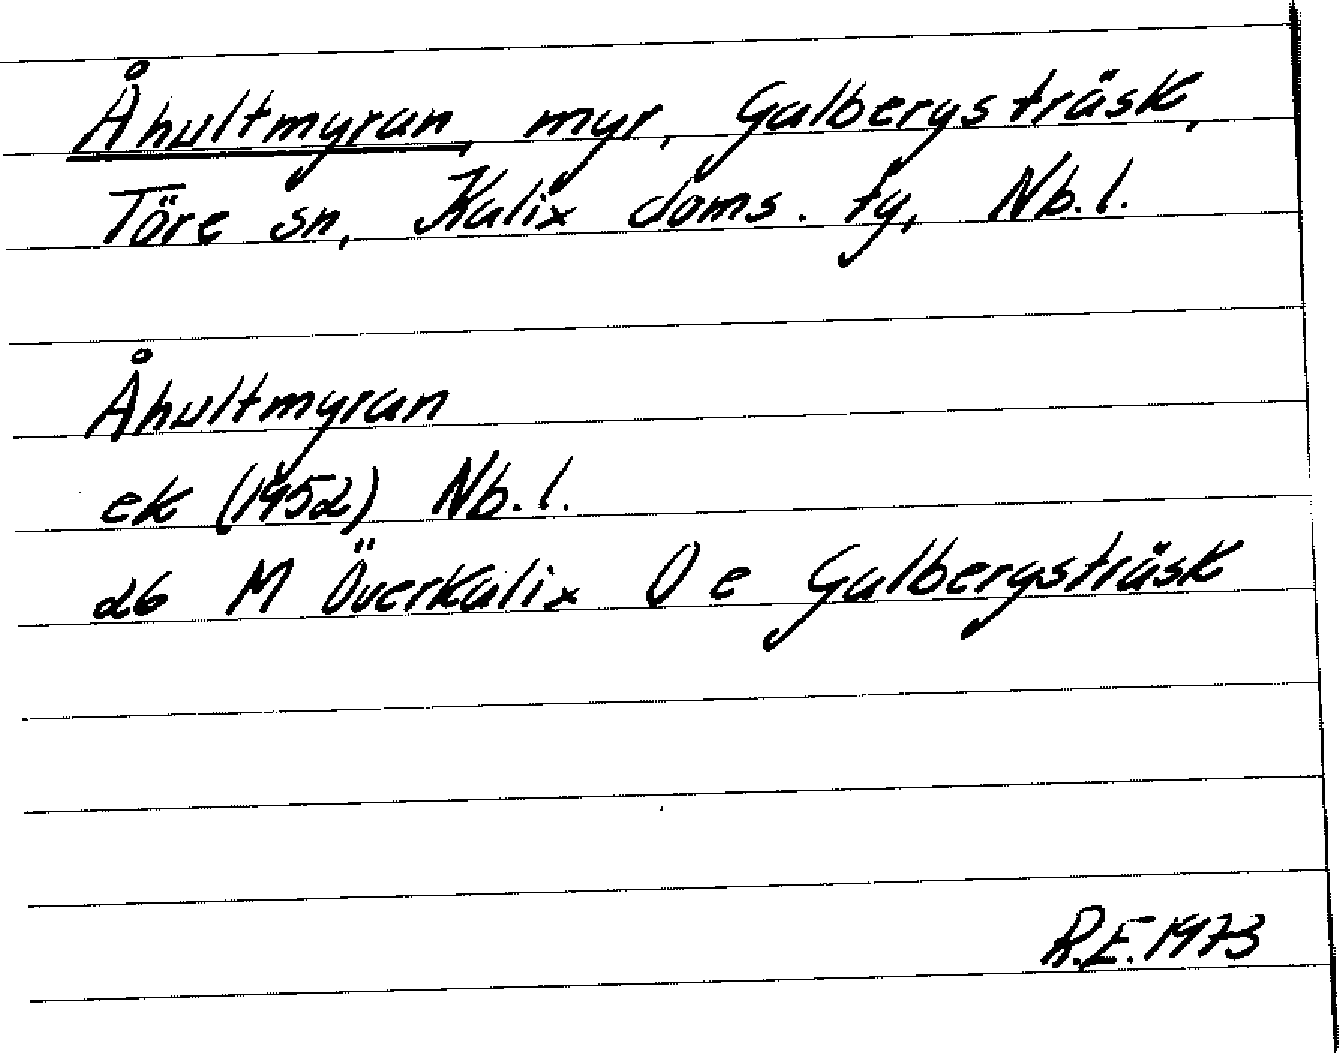 Åhultmyran, myr, Galbergsträsk,
Töre sn, Kalix doms. ty, Nb.l.
Åhultmyran
ek (1952) Nb.l.
26 M Överkalix Ö e Galbergsträsk
R.E. 1973